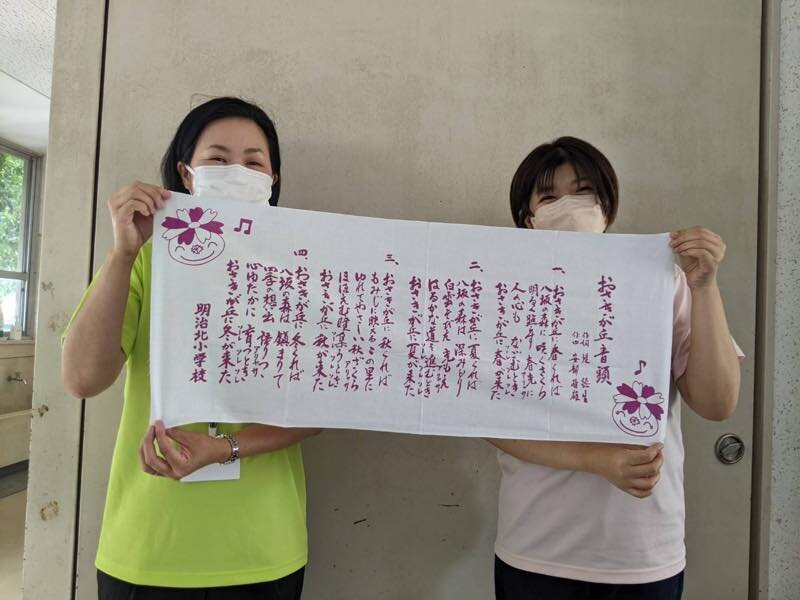 おさきが丘音頭
作詞 堤
作曲 安部
一、おさきが丘に春くれば
八坂の森に咲くさくら
明るく踊り 春光に
人の心も
おさきが丘に春の来た
二、おさきが丘に夏くれば
八坂の森は深みどり
白雲
はるかな道を進むとき
おさきが丘に夏が来た
三、おさきが丘に秋くれば
もみじに映えるこの里に
ゆれてやさしい秋ざくら
ほほえむ
おさきが丘に秋が来た
四、おさきが丘に冬くれば
八坂の森は鎮まりて
四季の想い出
心ゆたかに
おさきが丘に冬が来た
明治北小学校